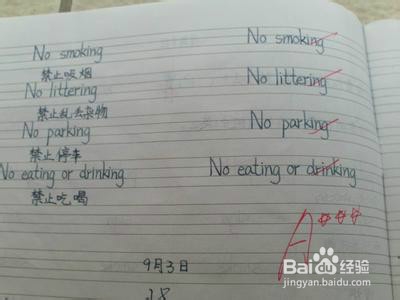 No smoking
禁止吸烟
No littering
禁止乱丢杂物
No parking
禁止停车
No eating or drinking
禁止吃喝
No smoking
No littering
No parking
No eating or drinking
A
9月3日
28
Baidu经验
jingyan.baidu.com